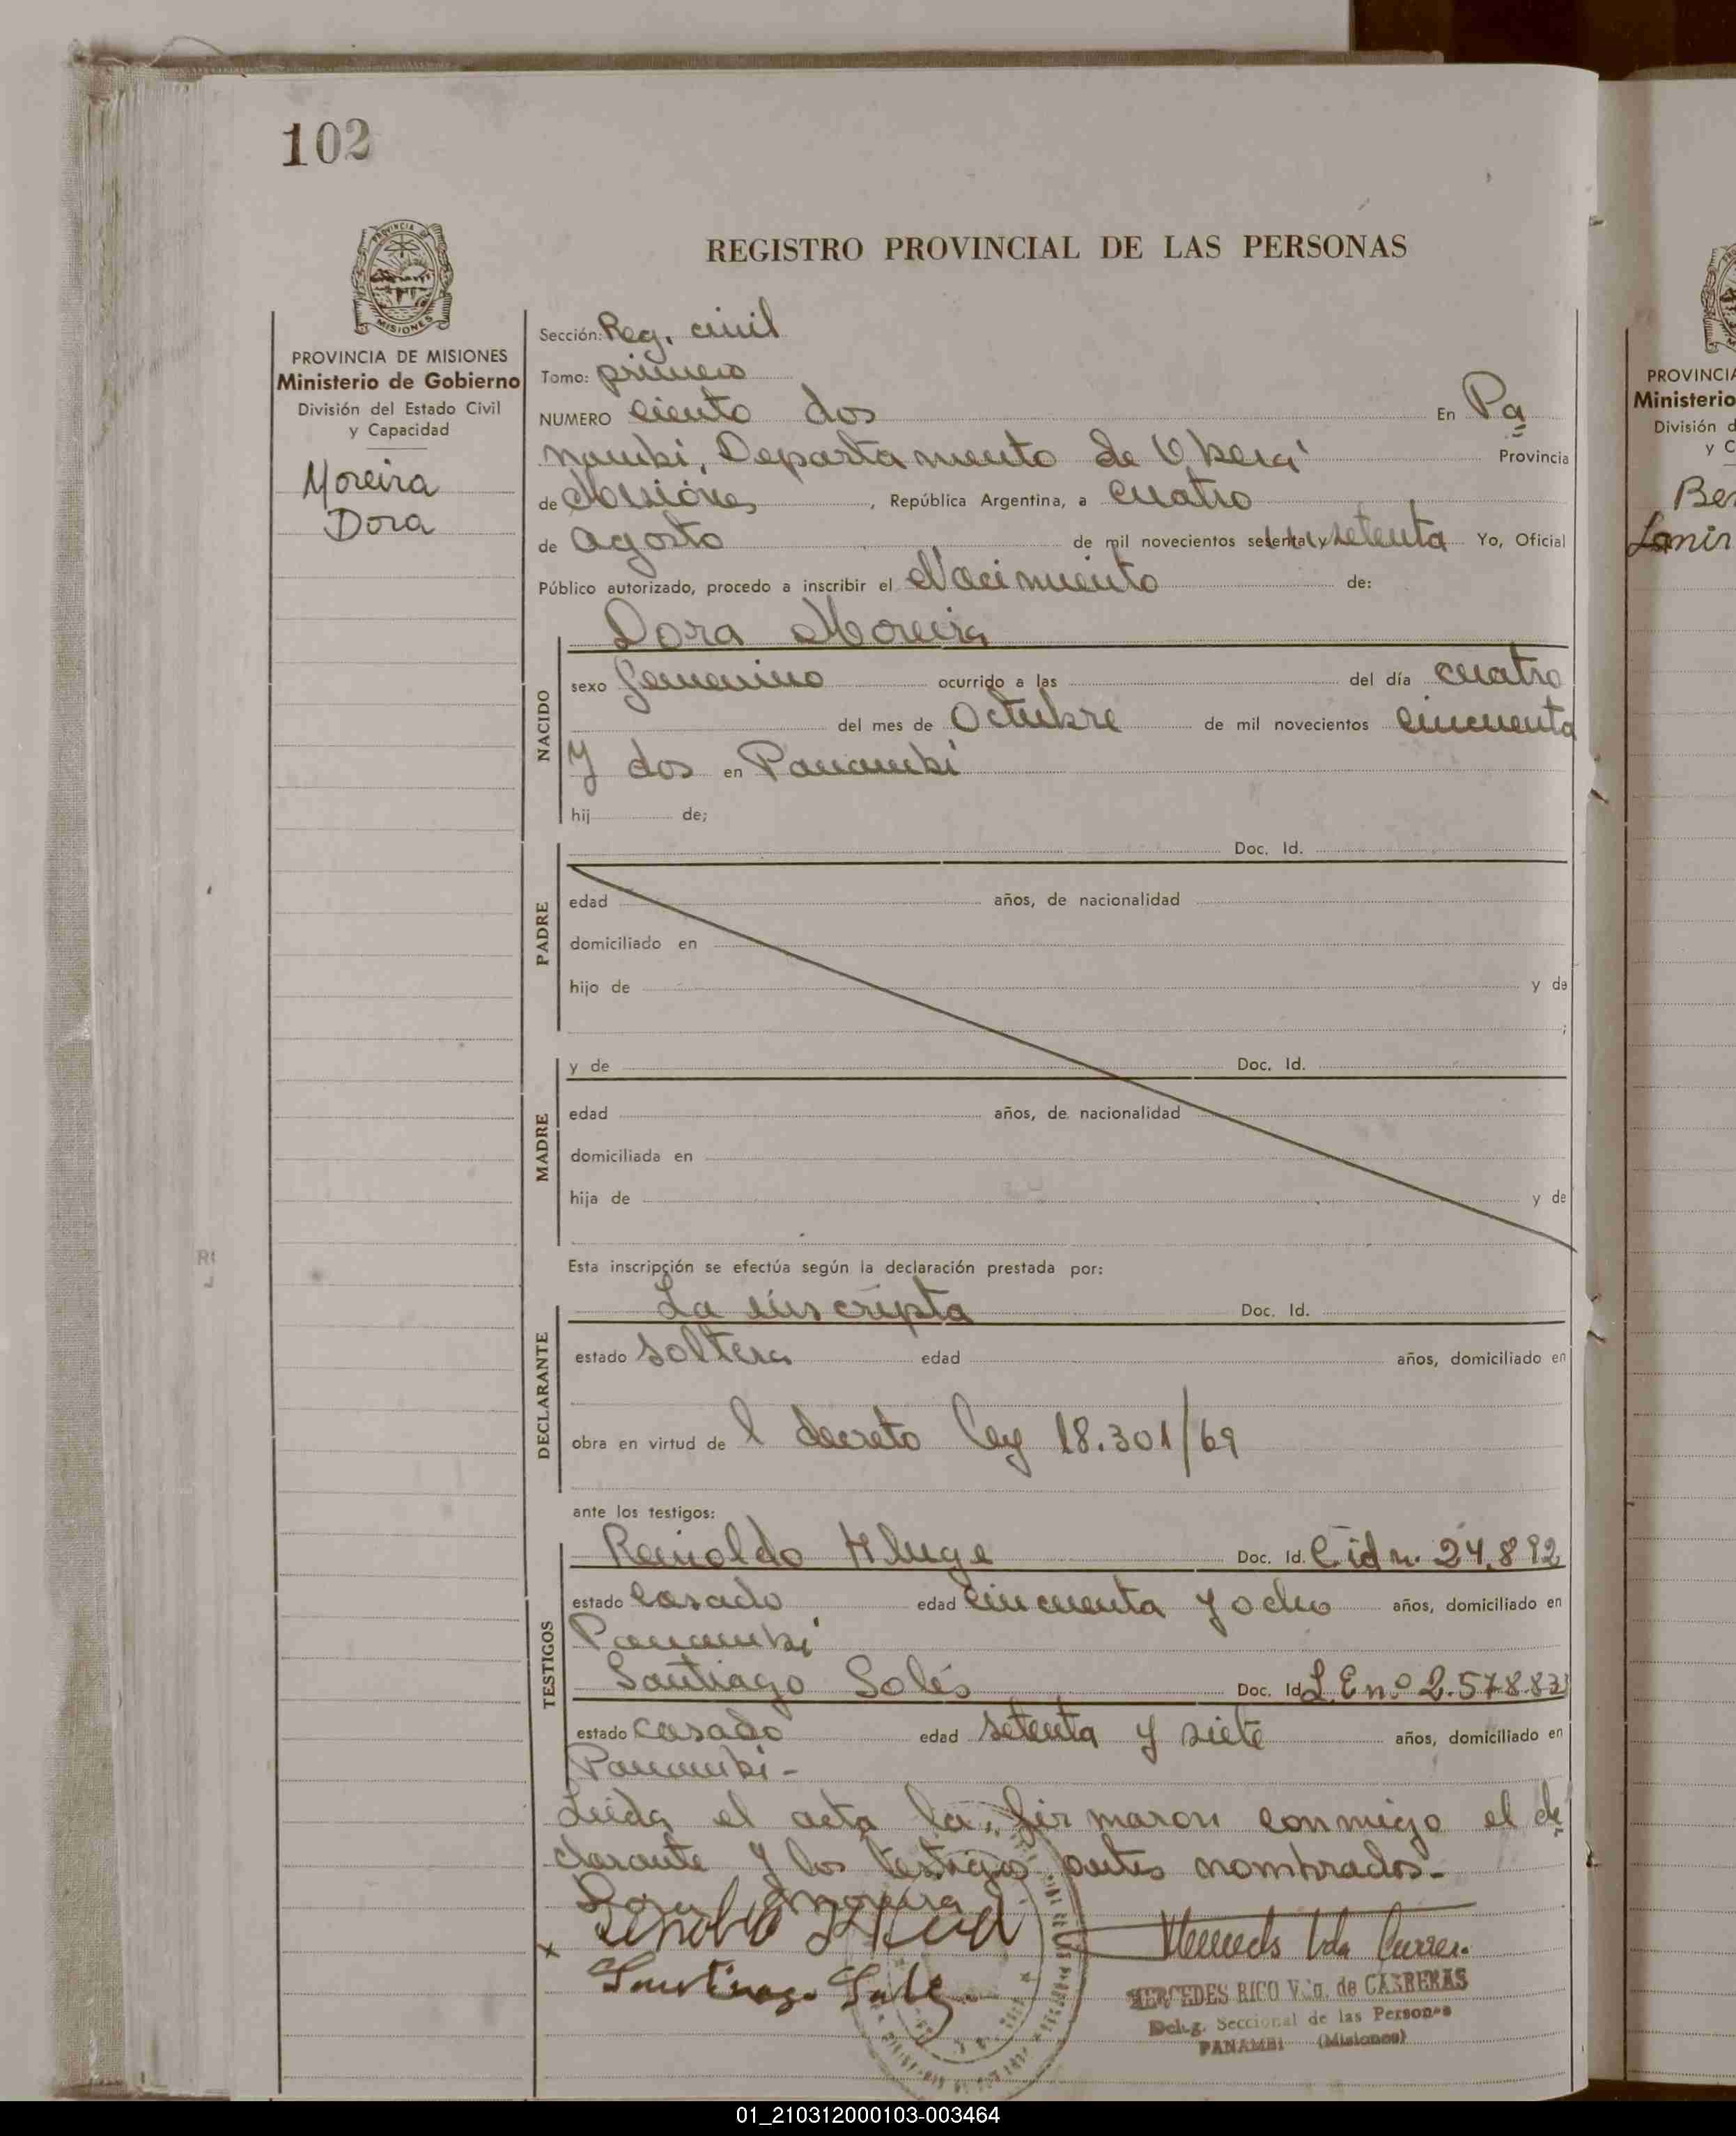 102
REGISTRO PROVINCIAL DE LAS PERSONAS
PROVINCIA DE MISIONES
Ministerio de Gobierno
División del Estado Civil
y Capacidad
Moreira
Dora
Sección: Reg. civil
Tomo: primero
NUMERO ciento dos En Pa
nambi, Departamento de Oberá Provincia
de Misiónes, República Argentina, a cuatro
de agosto de mil novecientos sesenta y setenta Yo, Oficial
Público autorizado, procedo a inscribir el Nacimiento de:
Dora Moreira
NACIDO
sexo femenino ocurrido a las del día cuatro
del mes de Octubre de mil novecientos cincuenta
y dos en Panambi
hij de;
PADRE
Doc. Id.
edad años, de nacionalidad
domiciliado en
hijo de y de
;
MADRE
y de Doc. Id.
edad años, de nacionalidad
domiciliada en
hija de y de
Esta inscripción se efectúa según la declaración prestada por:
DECLARANTE
La inscripta Doc. Id.
estado soltera edad años, domiciliado en
obra en virtud de l decreto ley 18.301/69
ante los testigos:
TESTIGOS
Reinoldo Kluge Doc. Id. C. id n. 24.892
estado casado edad cincuenta y ocho años, domiciliado en
Panambi
Santiago Solis Doc. Id. L. E nº 2.578.83
estado casado edad setenta y siete años, domiciliado en
Panambi -
Leida el acta la, firmaron conmigo el de
clarante y los testigos antes nombrados.-
Dora Moreira
Santiago
MERCEDES RICO Vda. de CARRERAS
Deleg. Seccional de las Personas
PANAMBI (Misiones)
PROVINCIA
Ministerio
División d
y C
Ber
01_210312000103-003464